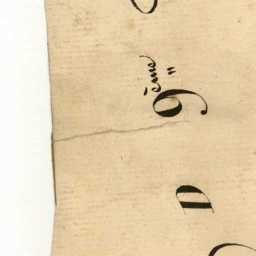 D 9ème